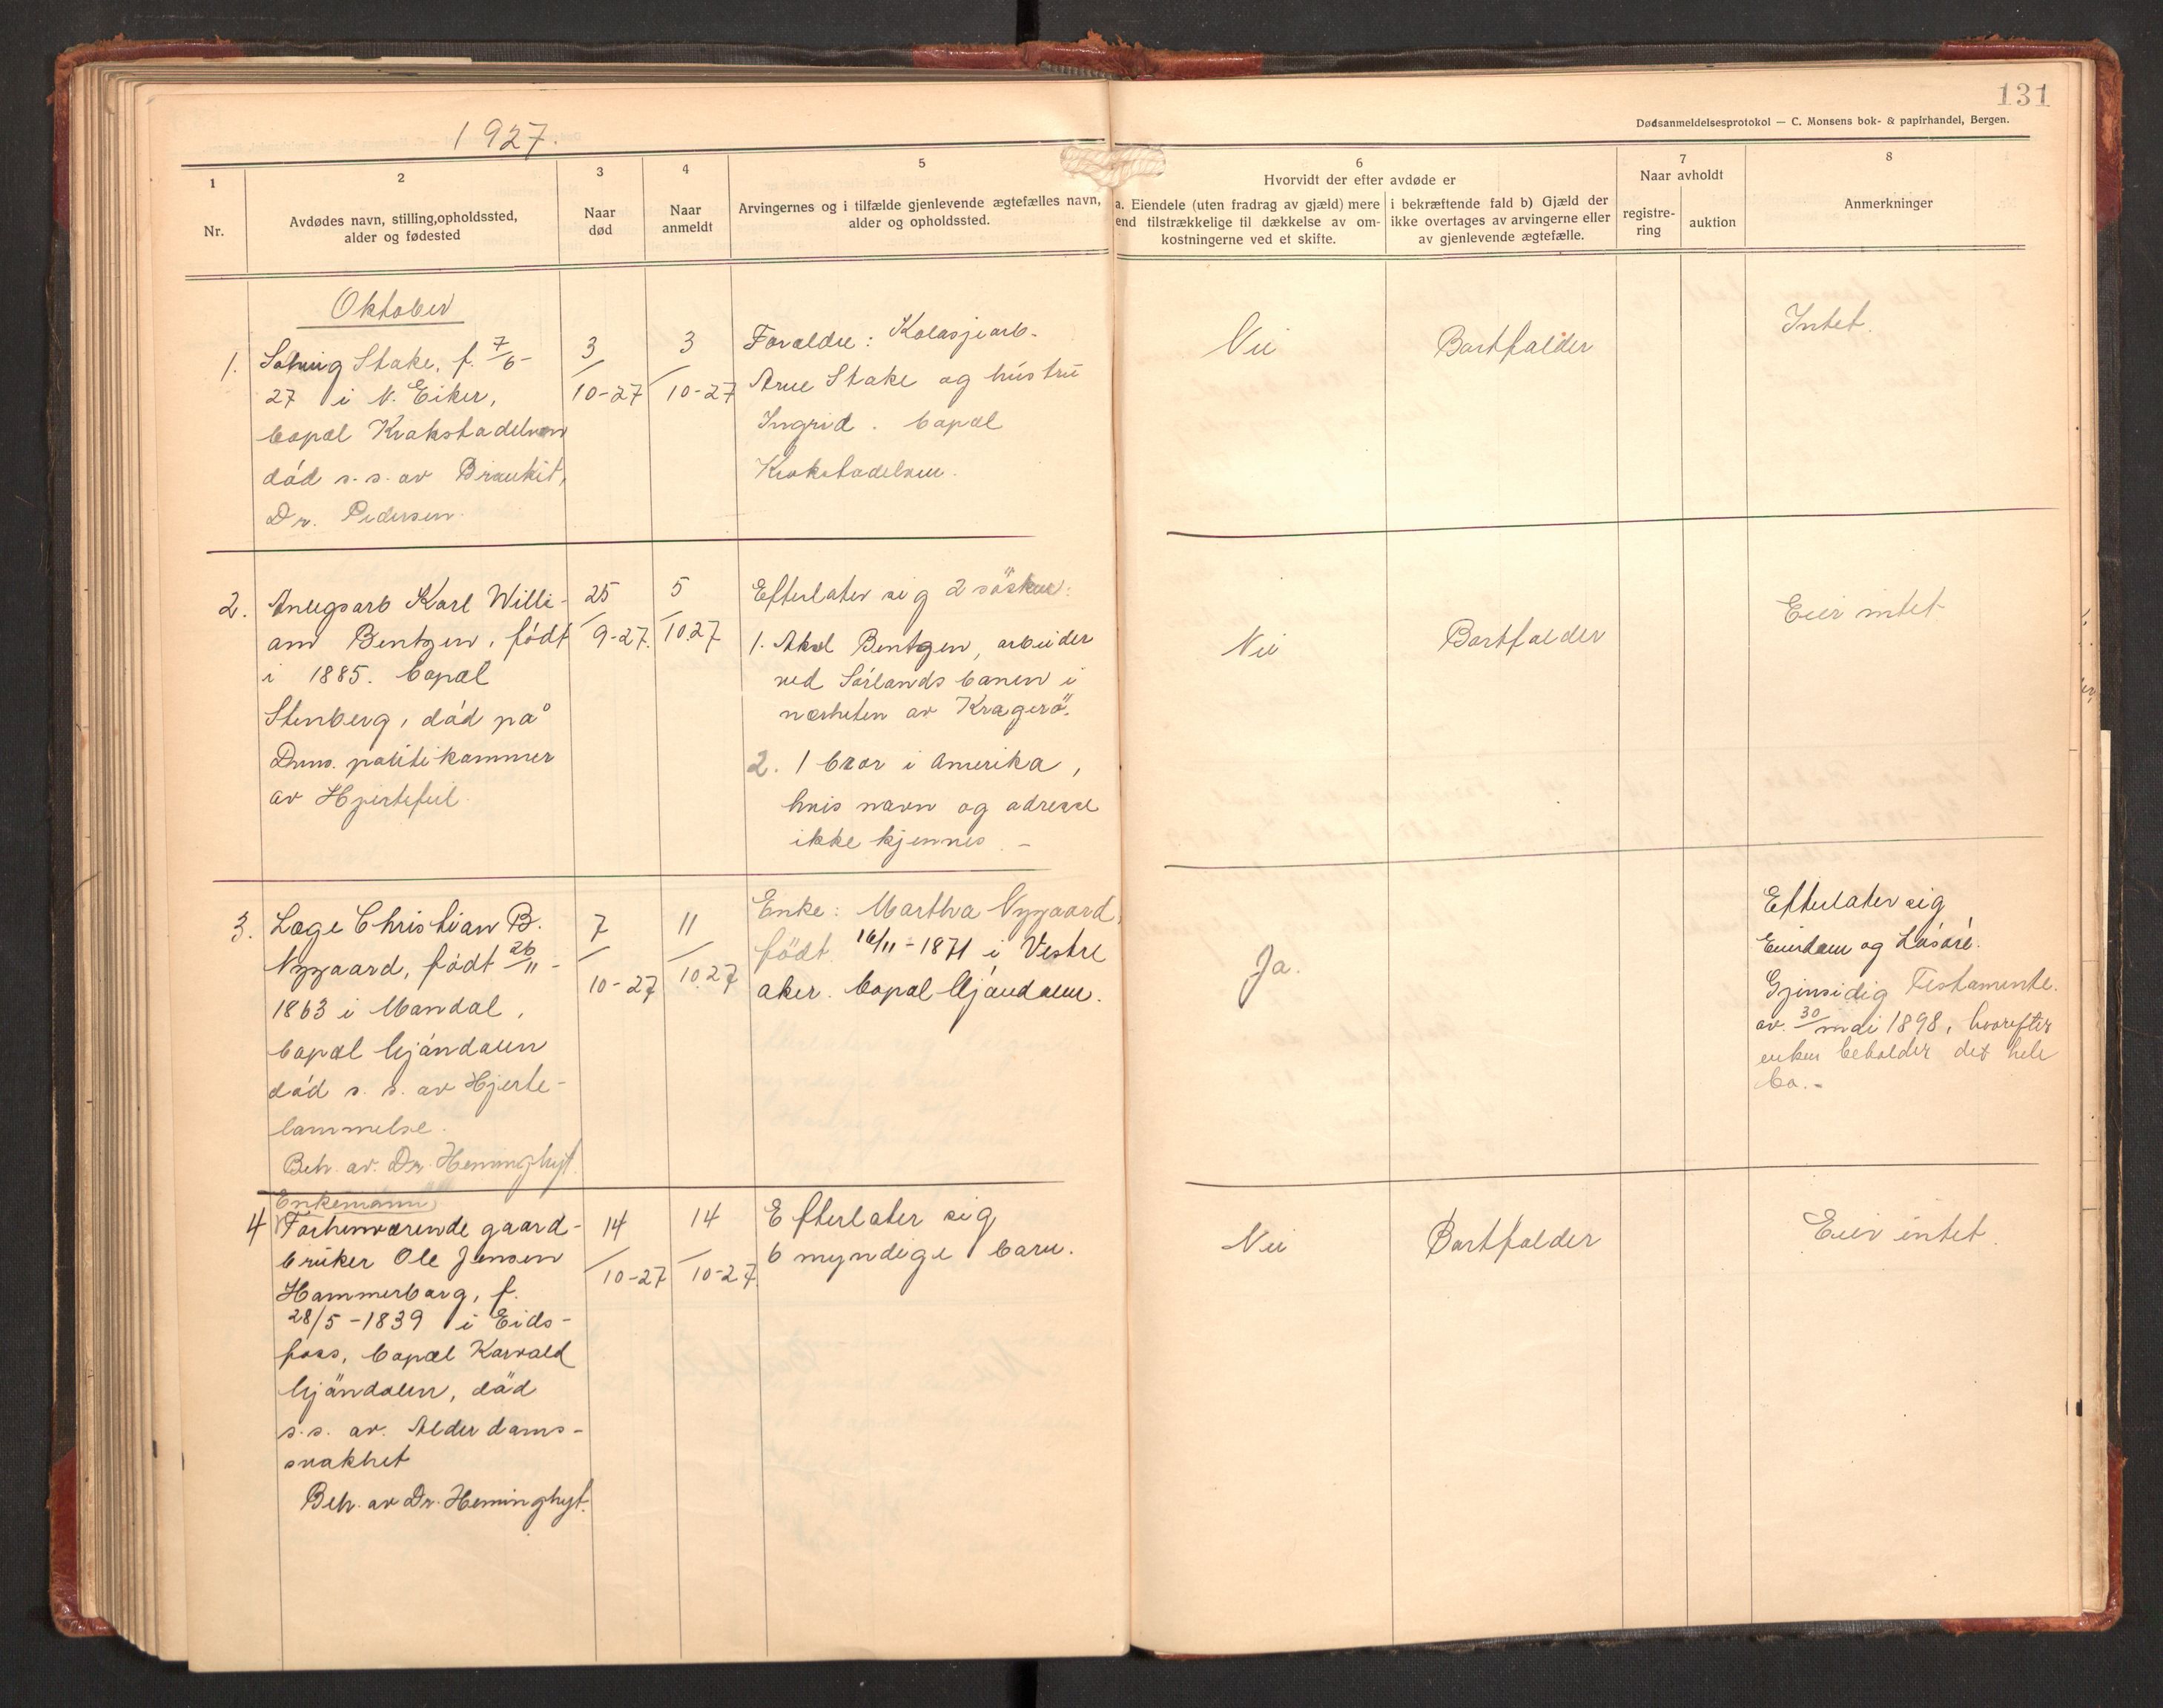 131
Dødsanmeldelsesprotokol — C. Monsens bok- & papirhandel, Bergen.
1927.
1
Nr.
2
Avdødes navn, stilling, opholdssted,
alder og fødested
3
Naar
død
4
Naar
anmeldt
5
Arvingernes og i tilfælde gjenlevende ægtefælles navn,
alder og opholdssted.
6
Hvorvidt der efter avdøde er
a. Eiendele (uten fradrag av gjæld) mere
end tilstrækkelige til dækkelse av om-
kostningerne ved et skifte.
i bekræftende fald b) Gjæld der
ikke overtages av arvingerne eller
av gjenlevende ægtefælle.
7
Naar avholdt
registre-
ring
auktion
8
Anmerkninger
Oktober
1.
Solveig Stake, f. 7/6-
27 i N. Eiker,
bopæl Krokstadelven
død s. s. av Bronkit,
Dr. Pedersen.
3/10-27
3/10-27
Forældre:
Arne Stake og hustru
Ingrid. bopæl
Krokstadelven.
Nei
Bortfalder
Intet.
2.
Anlegsarb Karl Willi-
am Bentzen, født
i 1885. bopæl
Stenberg, død på
Drms. politikammer
av Hjertefeil.
25/9-27.
5/10.27
Efterlater sig 2 søsken:
1. Aksel Bentzen, arbeider
ved Sørlandsbanen i
nærheten av Kragerö.
2. 1 bror i Amerika,
hvis navn og adresse
ikke kjennes. -
Nei
Bortfalder
Eier intet
3.
Læge Christian B.
Nygaard, født 26/11-
1863 i Mandal,
bopæl Mjøndalen
død s. s. av Hjerte-
lammelse.
Beh. av. Dr. Heminghyt.
7/10-27
11/10.27
Enke: Martha Nygaard,
født 16/11-1871 i Vestre
aker. bopæl Mjøndalen.
Ja.
Efterlater sig
Eiendom og Løsøre.
Gjensidig Testamente.
av. 30/ mai 1898, hvorefter
enken beholder det hele
bo.-
Enkemann
4
Forhenværende gaard-
bruker Ole Jensen
Hammerborg, f.
28/5-1839 i Eids-
foss, bopæl Karvald
Mjöndalen, död
s.s. av. Alderdoms-
svakhet
Beh. av Dr. Heminghyt.
14/10-27
14/10-27.
Efterlater sig
6 myndige barn.
Nei
Bortfalder
Eier intet.